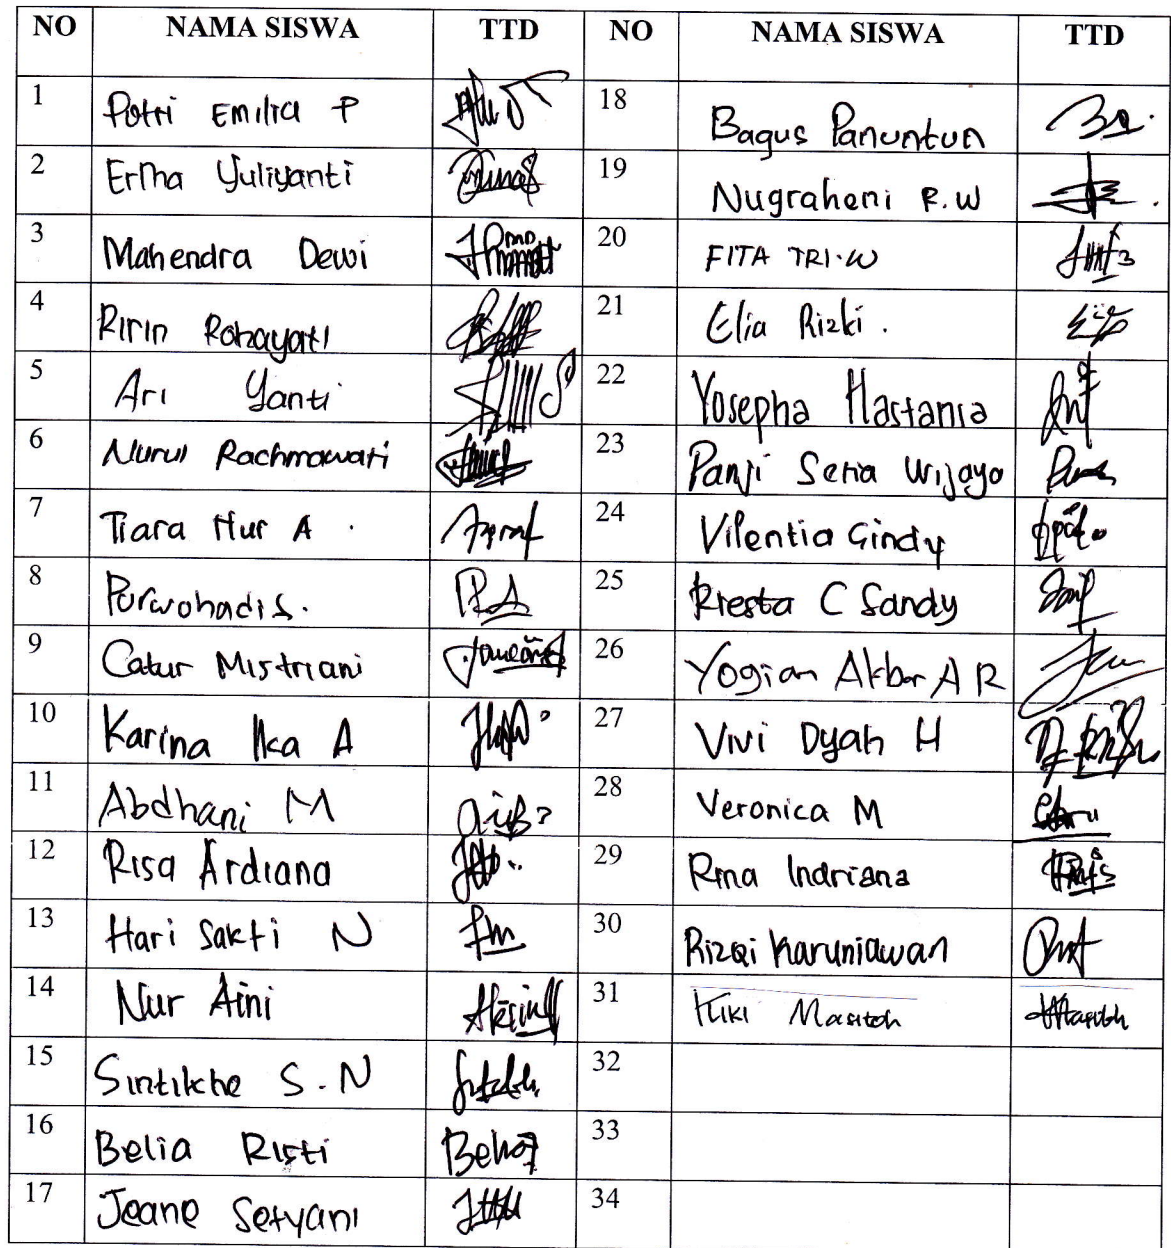 NO NAMA SISWA TTD NO NAMA SISWA TTD
1 Putri Emilia P 18 Bagus Panuntun
2 Erlha Yuliyanti 19 Nugraheni R.W
3 Mahendra Dewi 20 FITA TRI.W
4 Ririn Rohayati 21 Elia Rizki.
5 Ari Yanti 22 Yosepha Hastania
6 Nurul Rachmawati 23 Panji Setia Wijaya
7 Tiara Nur A. 24 Vilentia Cindy
8 Purwohadi S. 25 Riesta C Sandy
9 Catur Mistriani 26 Yogian Akbar A R
10 Karina Ika A 27 Vivi Dyah H
11 Abdhani M 28 Veronica M
12 Risa Ardiana 29 Rina Indriana
13 Hari Sakti N 30 Rizqi Karuniawan
14 Nur Aini 31 Kiki Masitoh
15 Sintikhe S.N 32
16 Belia Risti 33
17 Jeane Setyani 34